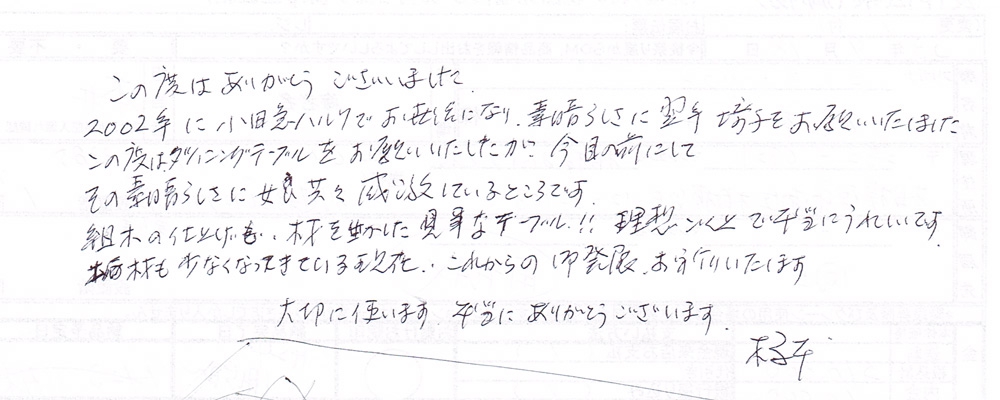 この度はありがとうございました.
2002年に小田急ハルクでお世話になり、素晴らしさに翌年椅子をお願いいたしました
この度はダイニングテーブルをお願いいたしましたが 今目の前にして
その素晴らしさに娘共々感激しているところです.
組木の仕上げも、材を生かした見事なテーブル!! 理想以上で本当にうれしいです.
材も少なくなってきている現在、これからの御発展お祈りいたします
大切に使います. 本当にありがとうございます.